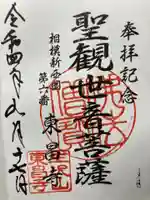 奉拝記念
聖観世音菩薩
相模新西国
第六番
東昌寺
令和四年九月十七日